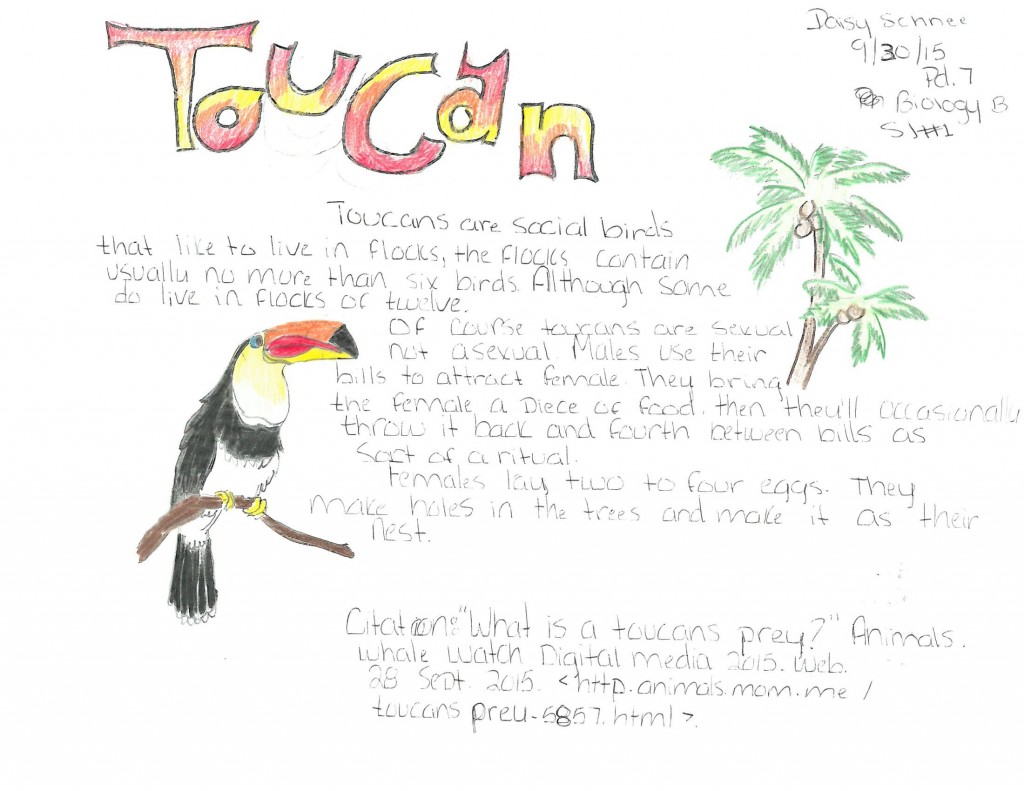 Toucan
Daisy Schnee
9/30/15
Pd. 7
Biology B
SJ#1
Toucans are social birds
that like to live in flocks, the flocks contain
usually no more than six birds. Although some
do live in flocks of twelve.
Of course toucans are sexual
not asexual. Males use their
bills to attract female. They bring
the female a piece of food. then they'll occasionally
throw it back and fourth between bills as
sort of a ritual.
Females lay two to four eggs. They
make holes in the trees and make it as their
nest.
Citation: "What is a toucans prey?" Animals.
Whale Watch Digital media 2015. Web.
28 Sept. 2015. <http.animals.mom.me/
toucans prey-5857.html>.